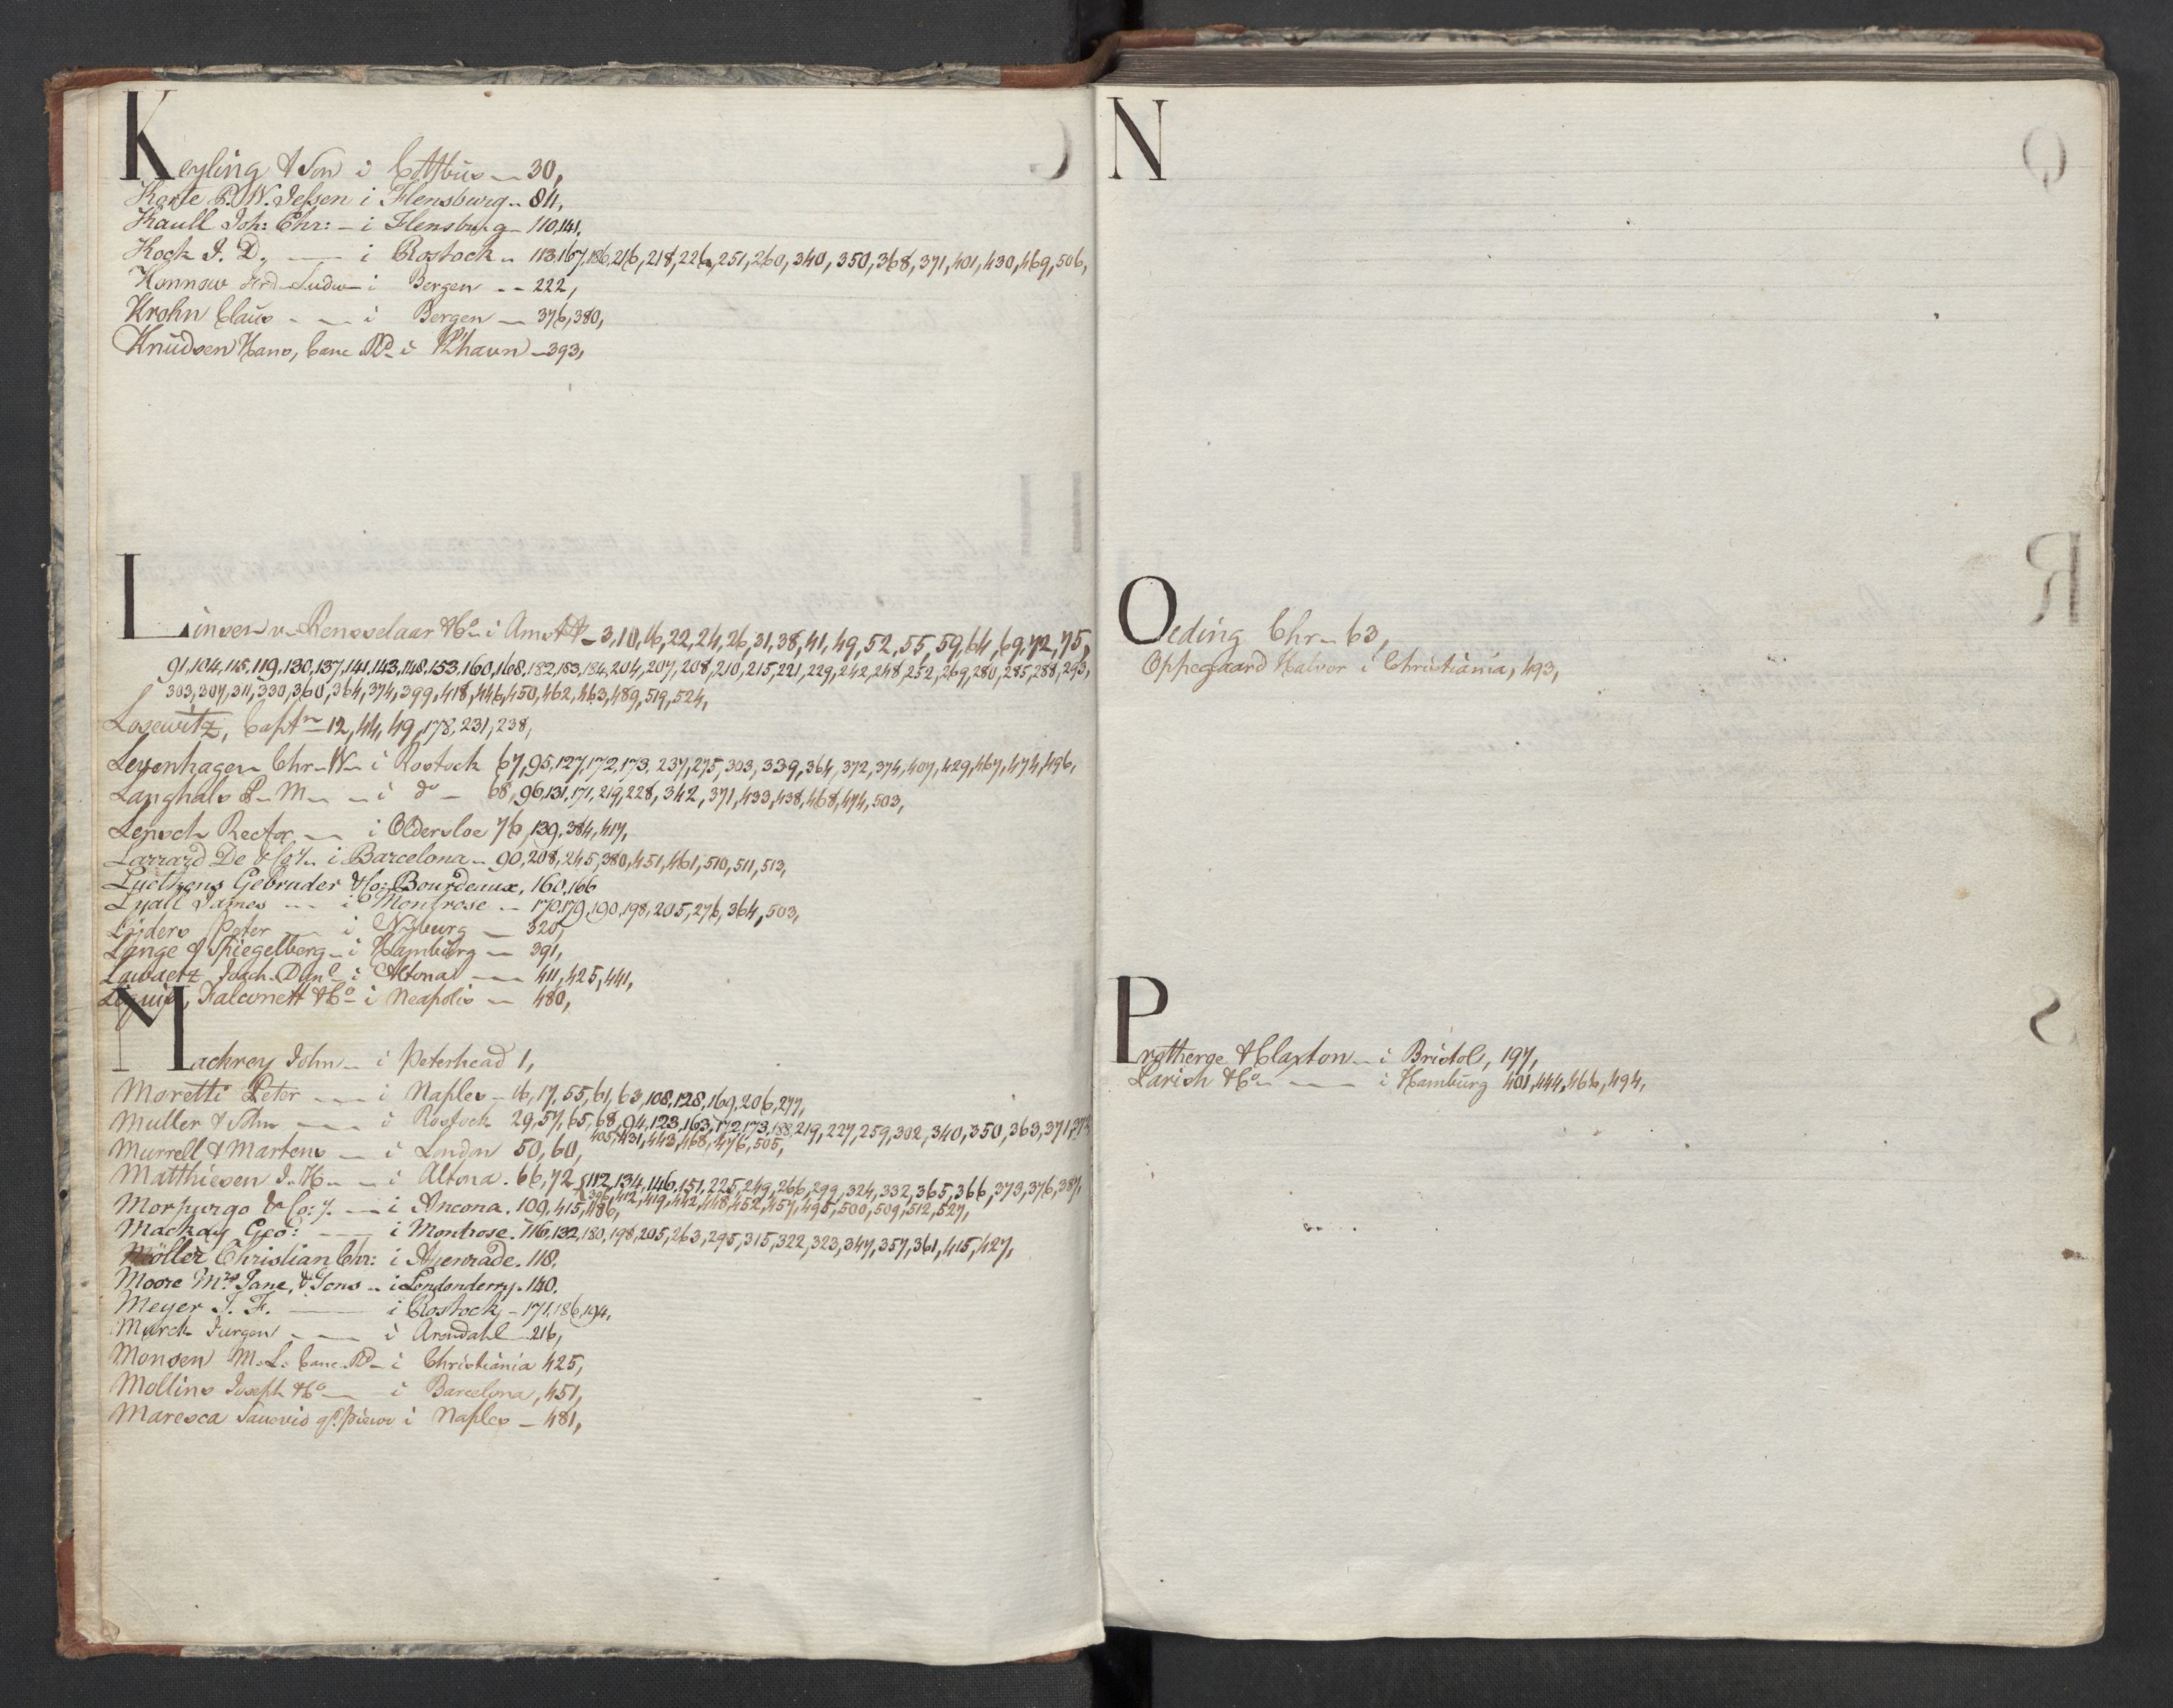 Keyling & Son i Cottbus 30,
Korte P. W. Jessen i Flensburg 84,
Kaull Joh: Chr: i Flensburg 110,141,
Kock J. D. i Rostock 113,167,186,216,218,226,251,260,340,350,368,371,401,430,469,506,
Konnow Ludw i Bergen 222,
Krohn Claus i Bergen 376,380,
Knudsen Hans, Canc. Rd i Khavn 393,
L
Linsen v. Rensselaar & Co i Amst 3,10,16,22,24,26,31,38,41,49,52,55,59,64,69,72,75,
91,104,115,119,130,137,141,143,148,153,160,168,182,183,184,204,207,208,210,215,221,229,242,248,252,269,280,285,288,293,
303,307,311,330,360,364,374,399,418,446,450,462,463,489,519,524,
Losewitz, Captn 12,44,49,178,231,238,
Levenhagen Chr. W. i Rostock 67,95,127,172,173,237,275,303,339,364,372,374,407,429,467,474,496,
Langhals P. M. i do 68,96,131,171,219,228,342,371,433,438,468,474,503,
Lensch Rector i Oldersloe 76,139,384,417,
Larrard De & Co/. i Barcelona 90,208,245,380,451,461,510,511,513,
Luetkens Gebruder & Co: Bourdeaux, 160,166
Lyall James i Montrose 170,179,190,198,205,276,364,503,
Lüders Peter i Nyburg 320,
Lange & Spiegelberg i Hamburg 391,
Lawaetz Joach. Danl i Altona 411,425,441,
Falconett & Co i Neapolis 480,
Mackrey John i Peterhead 1,
Moretti Peter i Naples 16,17,55,61,63,108,128,169,206,277,
Muller & Sohn i Rostock 29,57,65,68,94,123,163,172,173,188,219,227,259,302,340,350,363,371,373
405,431,443,468,476,505,
Murrell & Martens i London 50,60,
Matthiesen J. H. i Altona. 66,72,112,134,146,151,225,249,266,299,324,332,365,366,373,376,387,
396,412,419,442,448,452,457,495,500,509,512,527,
Morpurgo & Co:/. i Ancona. 109,415,486,
Mackay Geo: i Montrose. 116,132,180,198,205,263,295,315,322,323,347,357,361,415,427,
Möller Christian Chr: i Apenrade. 118.
Moore Mrs Jane, & Sons i Londonderry. 140.
Meyer J. F. i Rostock 171,186,194,
March Jurgen i Arendahl 216,
Monsen M. L: Canc. Rd i Christiania 425,
Mollins Joseph & Co i Barcelona, 451,
Maresca i Naples 481,
N
Oeding Chr. 63,
Oppegaard Halvor i Christiania, 493,
Protherge & Claxton i Bristol, 197,
Parish & Co i Hamburg 401,444,466,494,